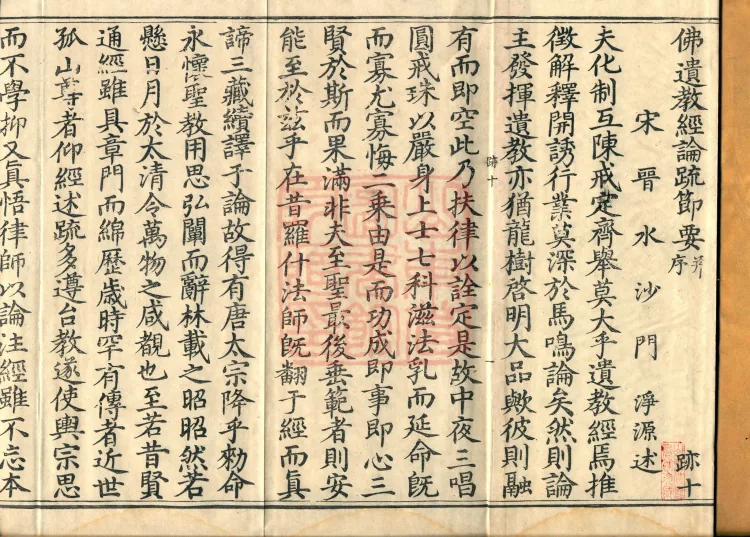 佛遺教經論疏節要 并序 跡十
宋晉水沙門淨源述
夫化制互陳戒定齊舉莫大乎遺教經焉推
徵解釋開誘行業莫深於馬鳴論矣然則論
主發揮遺教亦猶龍樹啓明大品歟彼則融
跡十
有而即空此乃扶律以詮定是故中夜三唱
圓戒珠以嚴身上士七科滋法乳而延命既
而寡尤寡悔二乘由是而功成即事即心三
賢於斯而果滿非夫至聖最後垂範者則安
能至於茲乎在昔羅什法師既翻于經而真
諦三藏續譯于論故得有唐太宗降乎勑命
永懷聖教用思弘闡而辭林載之昭昭然若
懸日月於太清令萬物之咸覩也至若昔賢
通經雖具章門而綿歷歲時罕有傳者近世
孤山尊者仰經述疏多遵台教遂使輿宗思
而不學抑又真悟律師以論注經雖不忘本